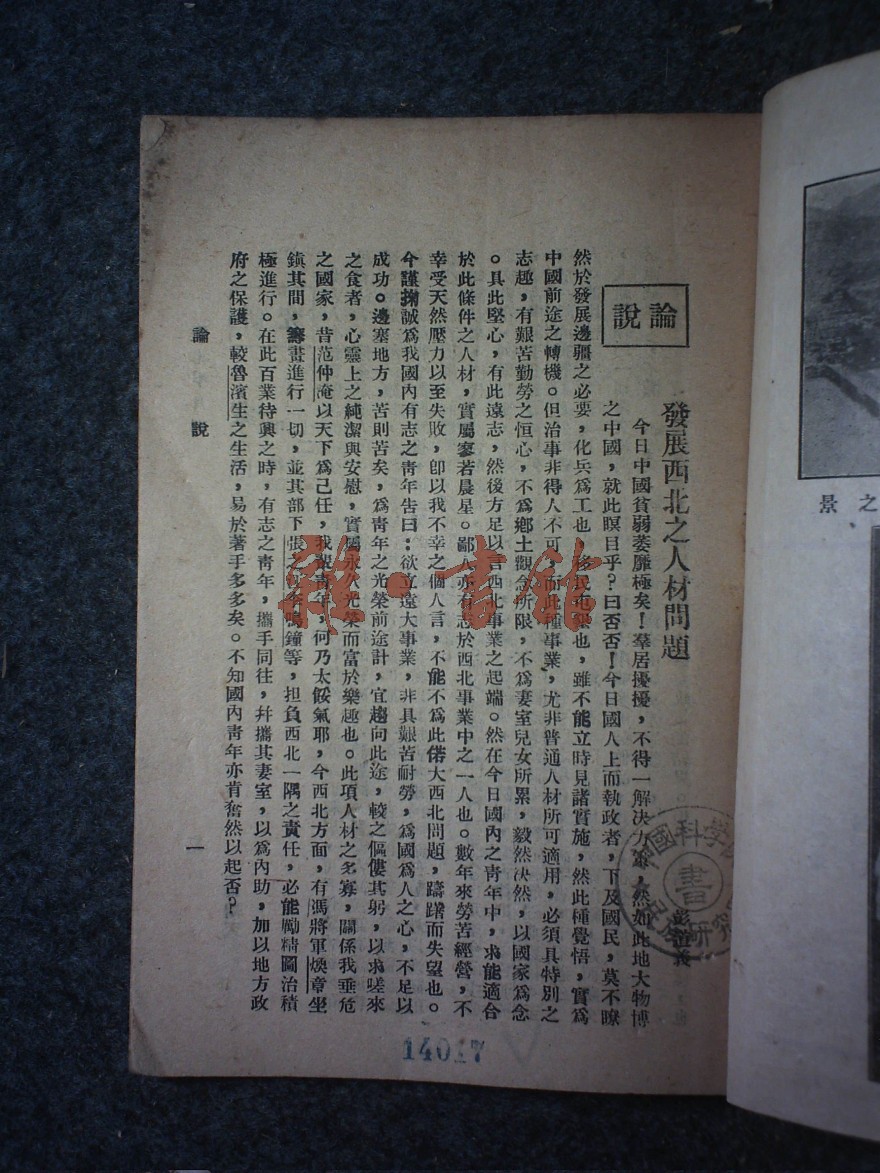 論說
發展西北之人材問題
今日中國貧弱萎靡極矣！羣居擾擾，不得一解決方策，然如此地大物博
之中國，就此瞑目乎？曰否否！今日國人上而執政者，下及國民，莫不瞭
然於發展邊疆之必要，化兵爲工也，移民屯墾也，雖不能立時見諸實施，然此種覺悟，實爲
中國前途之轉機。但治事非得人不可，而此種事業，尤非普通人材所可適用，必須具特別之
志趣，有艱苦勤勞之恒心，不爲鄉土觀念所限，不爲妻室兒女所累，毅然決然，以國家爲念
。具此堅心，有此遠志，然後方足以言西北事業之起端。然在今日國內之靑年中，求能適合
於此條件之人材，實屬寥若晨星。鄙人亦有志於西北事業中之一人也。數年來勞苦經營，不
幸受天然壓力以至失敗，卽以我不幸之個人言，不能不爲此偌大西北問題，躊躇而失望也。
今謹掬誠爲我國內有志之靑年告曰：欲立遠大事業，非具艱苦耐勞，爲國爲人之心，不足以
成功。邊塞地方，苦則苦矣，爲靑年之光榮前途計，宜趨向此途，較之傴僂其躬，以求嗟來
之食者，心靈上之純潔與安慰，實屬永久光榮而富於樂趣也。此項人材之多寡，關係我垂危
之國家，昔范仲淹以天下爲己任，我輩靑年，何乃太餒氣耶，今西北方面，有馮將軍煥章坐
鎮其間，籌畫進行一切，並其部下張之江李鳴鐘等，担負西北一隅之責任，必能勵精圖治積
極進行。在此百業待興之時，有志之靑年，攜手同往，幷攜其妻室，以爲內助，加以地方政
府之保護，較魯濱生之生活，易於著手多多矣。不知國內靑年亦肯奮然以起否？
論說
一
14017
之景
雜·書館
書